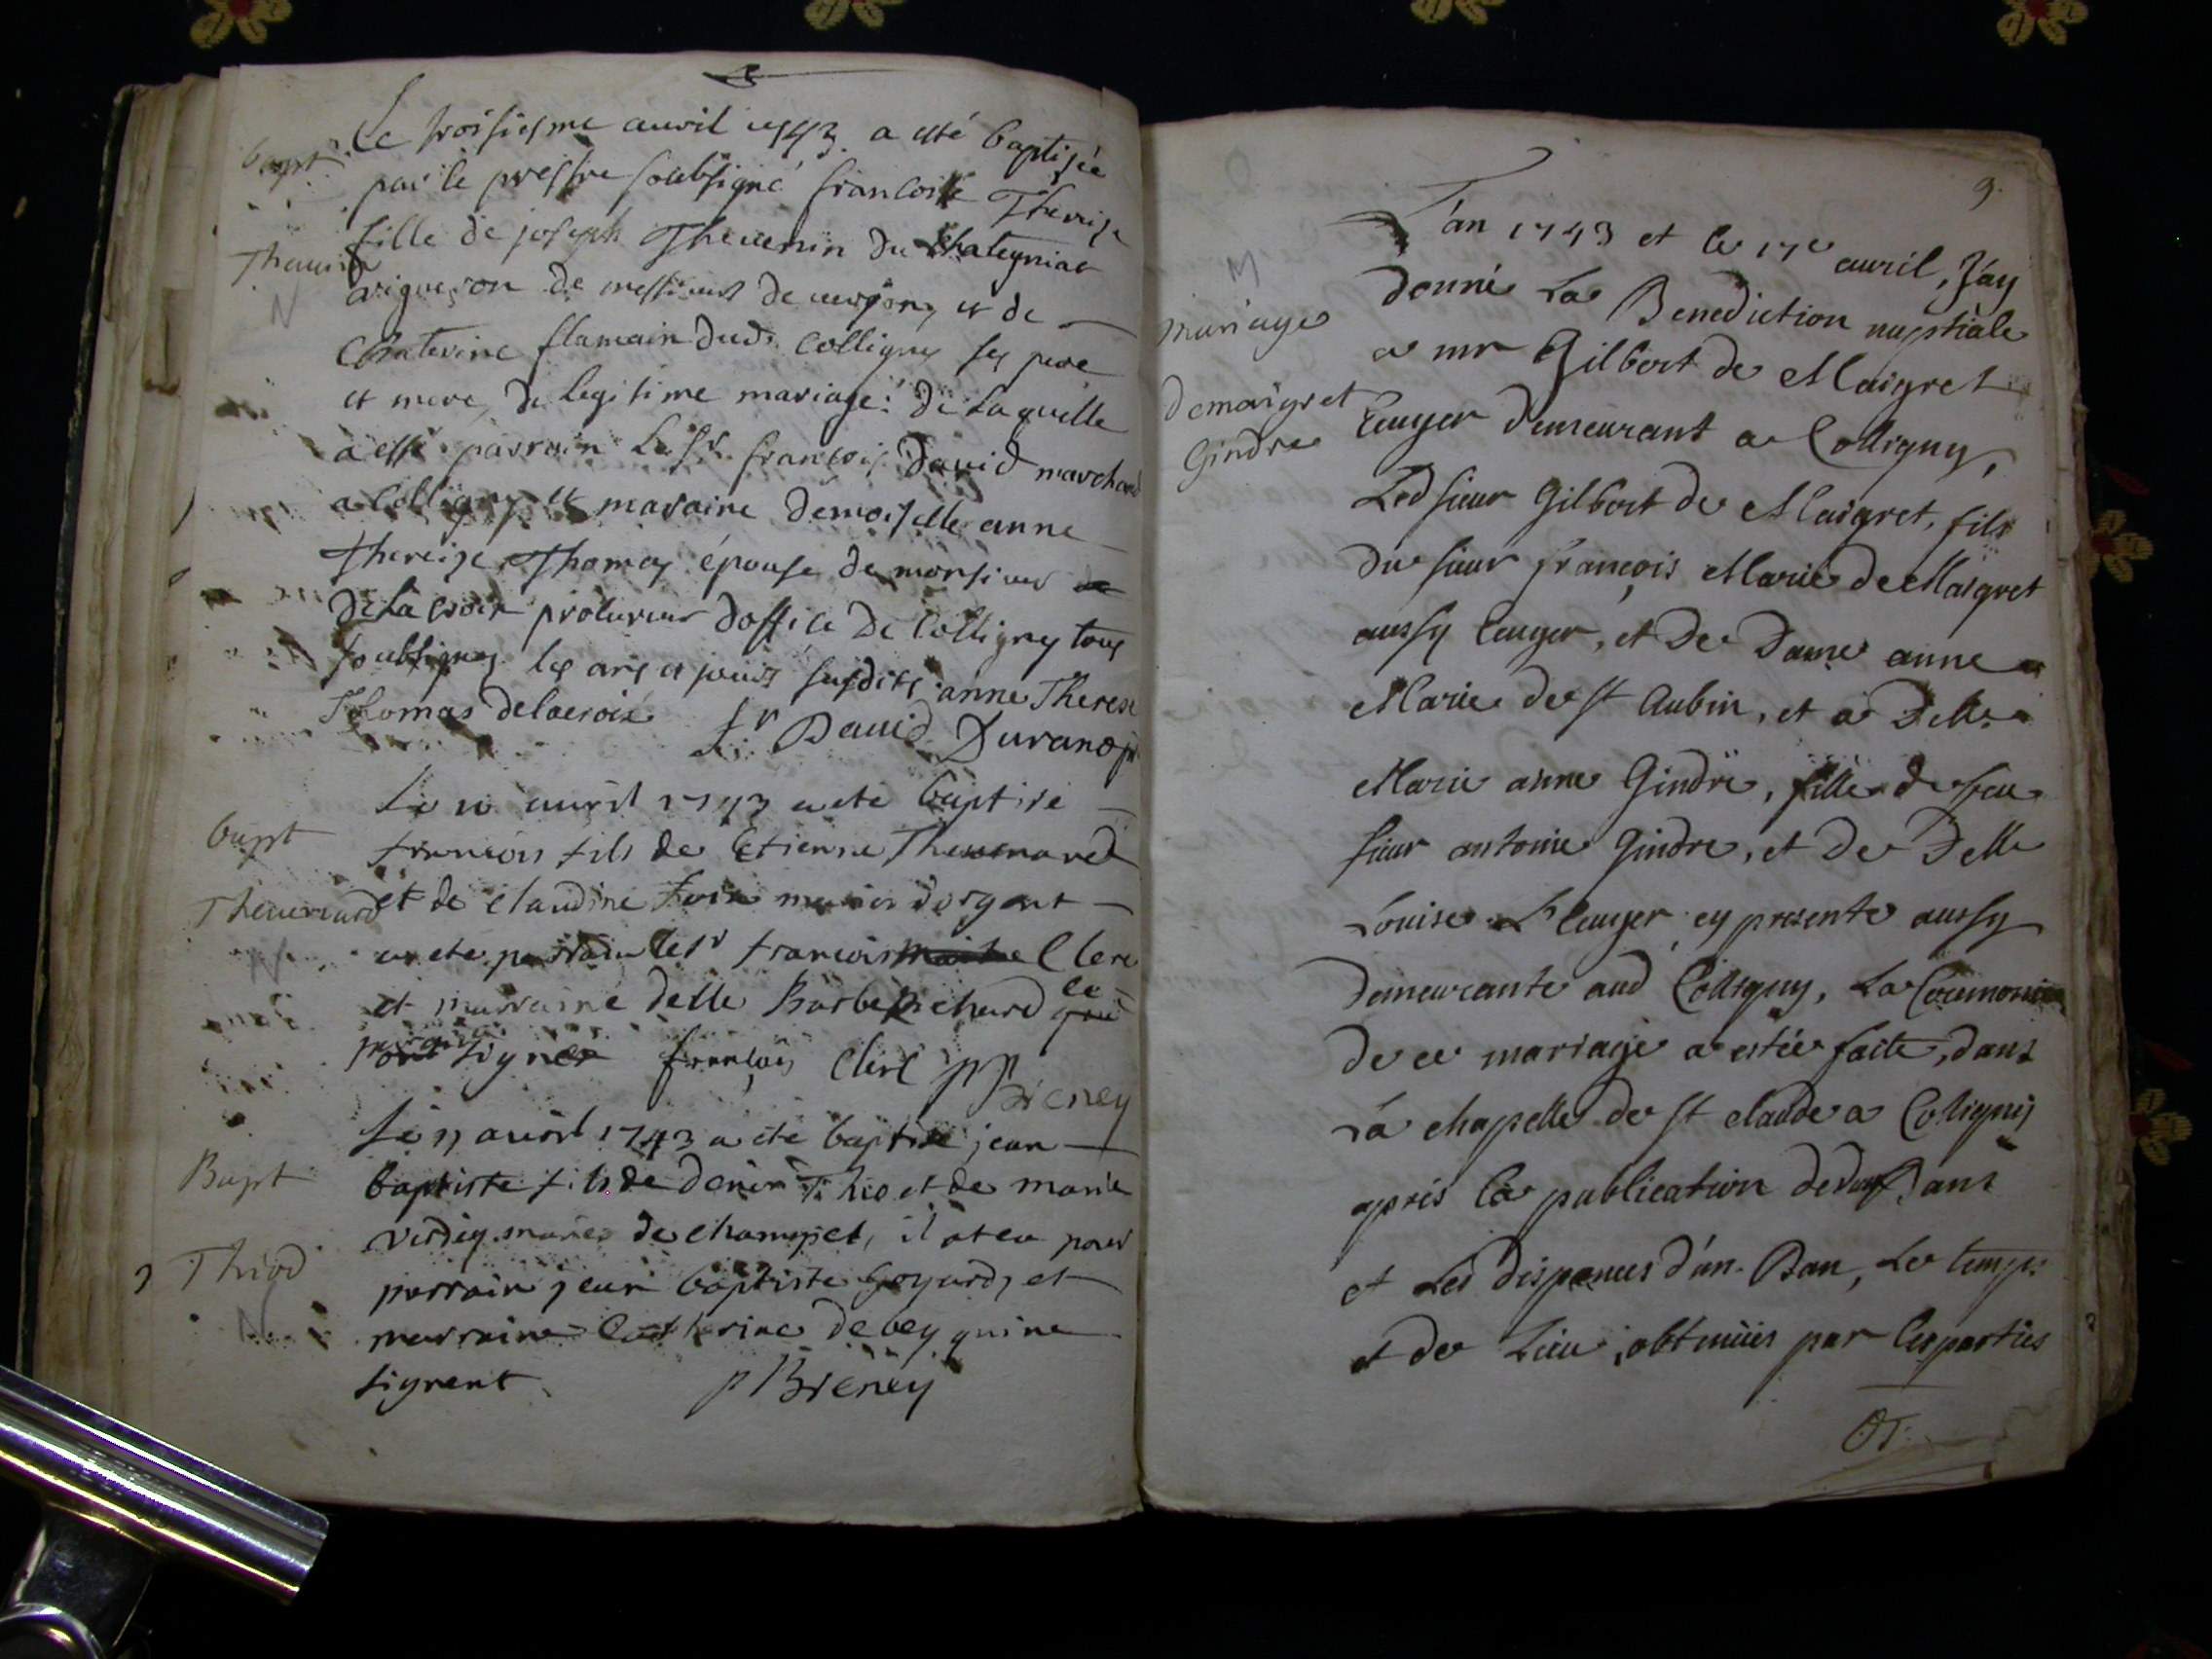 Le troisiesme avril 1743. a esté baptisée
bapt
par le prestre soubsigné francoise Thereize
fille de joseph Thevenin du
Thevenin
N
vigneron de messieurs de et de
Chaterine flamain dud. Colligny ses pere
et mere, de legitime mariage: de laquelle
a esté parrain Le Sr. francois David marchand
a Colligny et maraine demoiselle anne
Thereize Thomas épouse de monsieur
De la croix procureur d'office de Colligny tous
soubsignes les ans et jours susdits anne Therese
Thomas delacroix fr David Durand ptr
Le 10 avril 1743 a eté baptisé
bapt
francois fils de Etienne Thevenard
Thevenard
N
et de claudine mariés
a eté parrain le sr francois Clerc
et marraine delle Barbe pichard le
parain signer francois Clerc pp
Bieney
Le 17 avril 1743 a eté baptisé jean
Bapt
baptiste fils de denis Thio et de marie
Thiod
N
verdey mariés de champel, il at eu pour
parrain jean baptiste goyard, et
marraine Catherine debey qui ne
signent. p Bieney
9.
L'an 1743 et le 17e avril, J'ay
M
mariage
donné La Benediction nuptiale
a mr Gilbert de Maigret
demaigret
Gindre
Ecuyer demeurant a Colligny,
Led sieur Gilbert de Maigret, fils
du sieur françois Marie de Maigret
aussy Ecuyer, et de Dame anne
Marie de st Aubin, et a Delle
Marie anne Gindre, fille de feu
sieur antoine Gindre, et de Delle
Louise L'Ecuyer cy presente aussy
demeurante aud Colligny, La Ceremonie
de ce mariage a estée faite, dans
La chapelle de st claude a Coligny
apres la publication de deux Bans
et Les dispenses d'un Ban, de temps
et de Lieu, obtenües par les parties